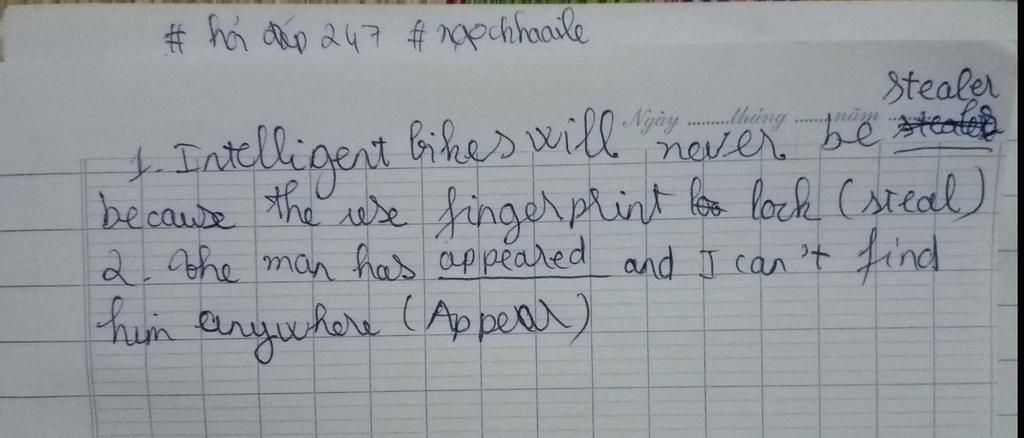 # hỏi đáp 247 # ngochhaaile
stealer
Ngày ........tháng ........năm ........
1. Intelligent bikes will never be
because the use fingerprint lock (steal)
2. The man has appeared and I can't find
him anywhere (Appear)